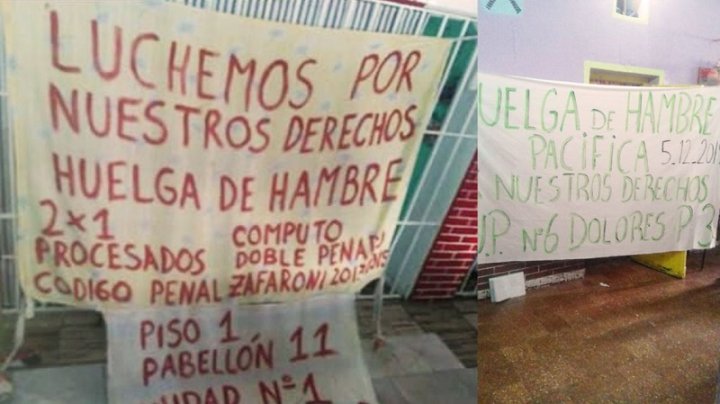 LUCHEMOS POR
NUESTROS DERECHOS
HUELGA DE HAMBRE
2x1
PROCESADOS
CODIGO PENAL
COMPUTO
DOBLE PENA
ZAFARONI
PISO 1
PABELLÓN 11
Nº1
HUELGA DE HAMBRE
PACIFICA 5.12.201
NUESTROS DERECHOS
Nº6 DOLORES P 3